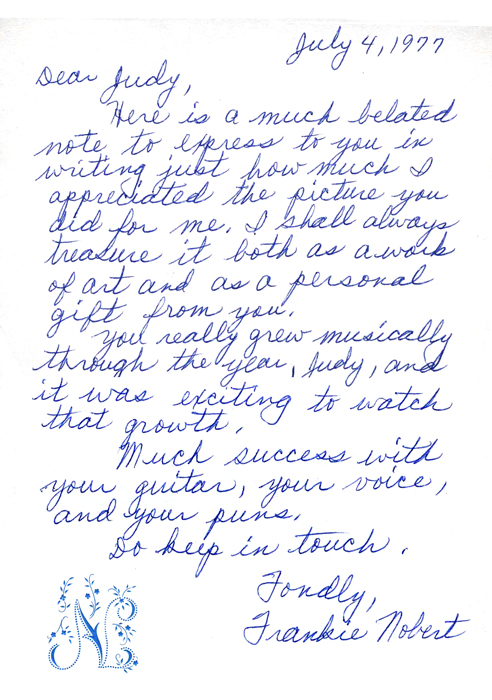 July 4, 1977
Dear Judy,
Here is a much belated
note to express to you in
writing just how much I
appreciated the picture you
did for me. I shall always
treasure it both as a work
of art and as a personal
gift from you.
You really grew musically
through the year, Judy, and
it was exciting to watch
that growth.
Much success with
your guitar, your voice,
and your puns.
Do keep in touch.
Fondly,
Frankie Nobert
N